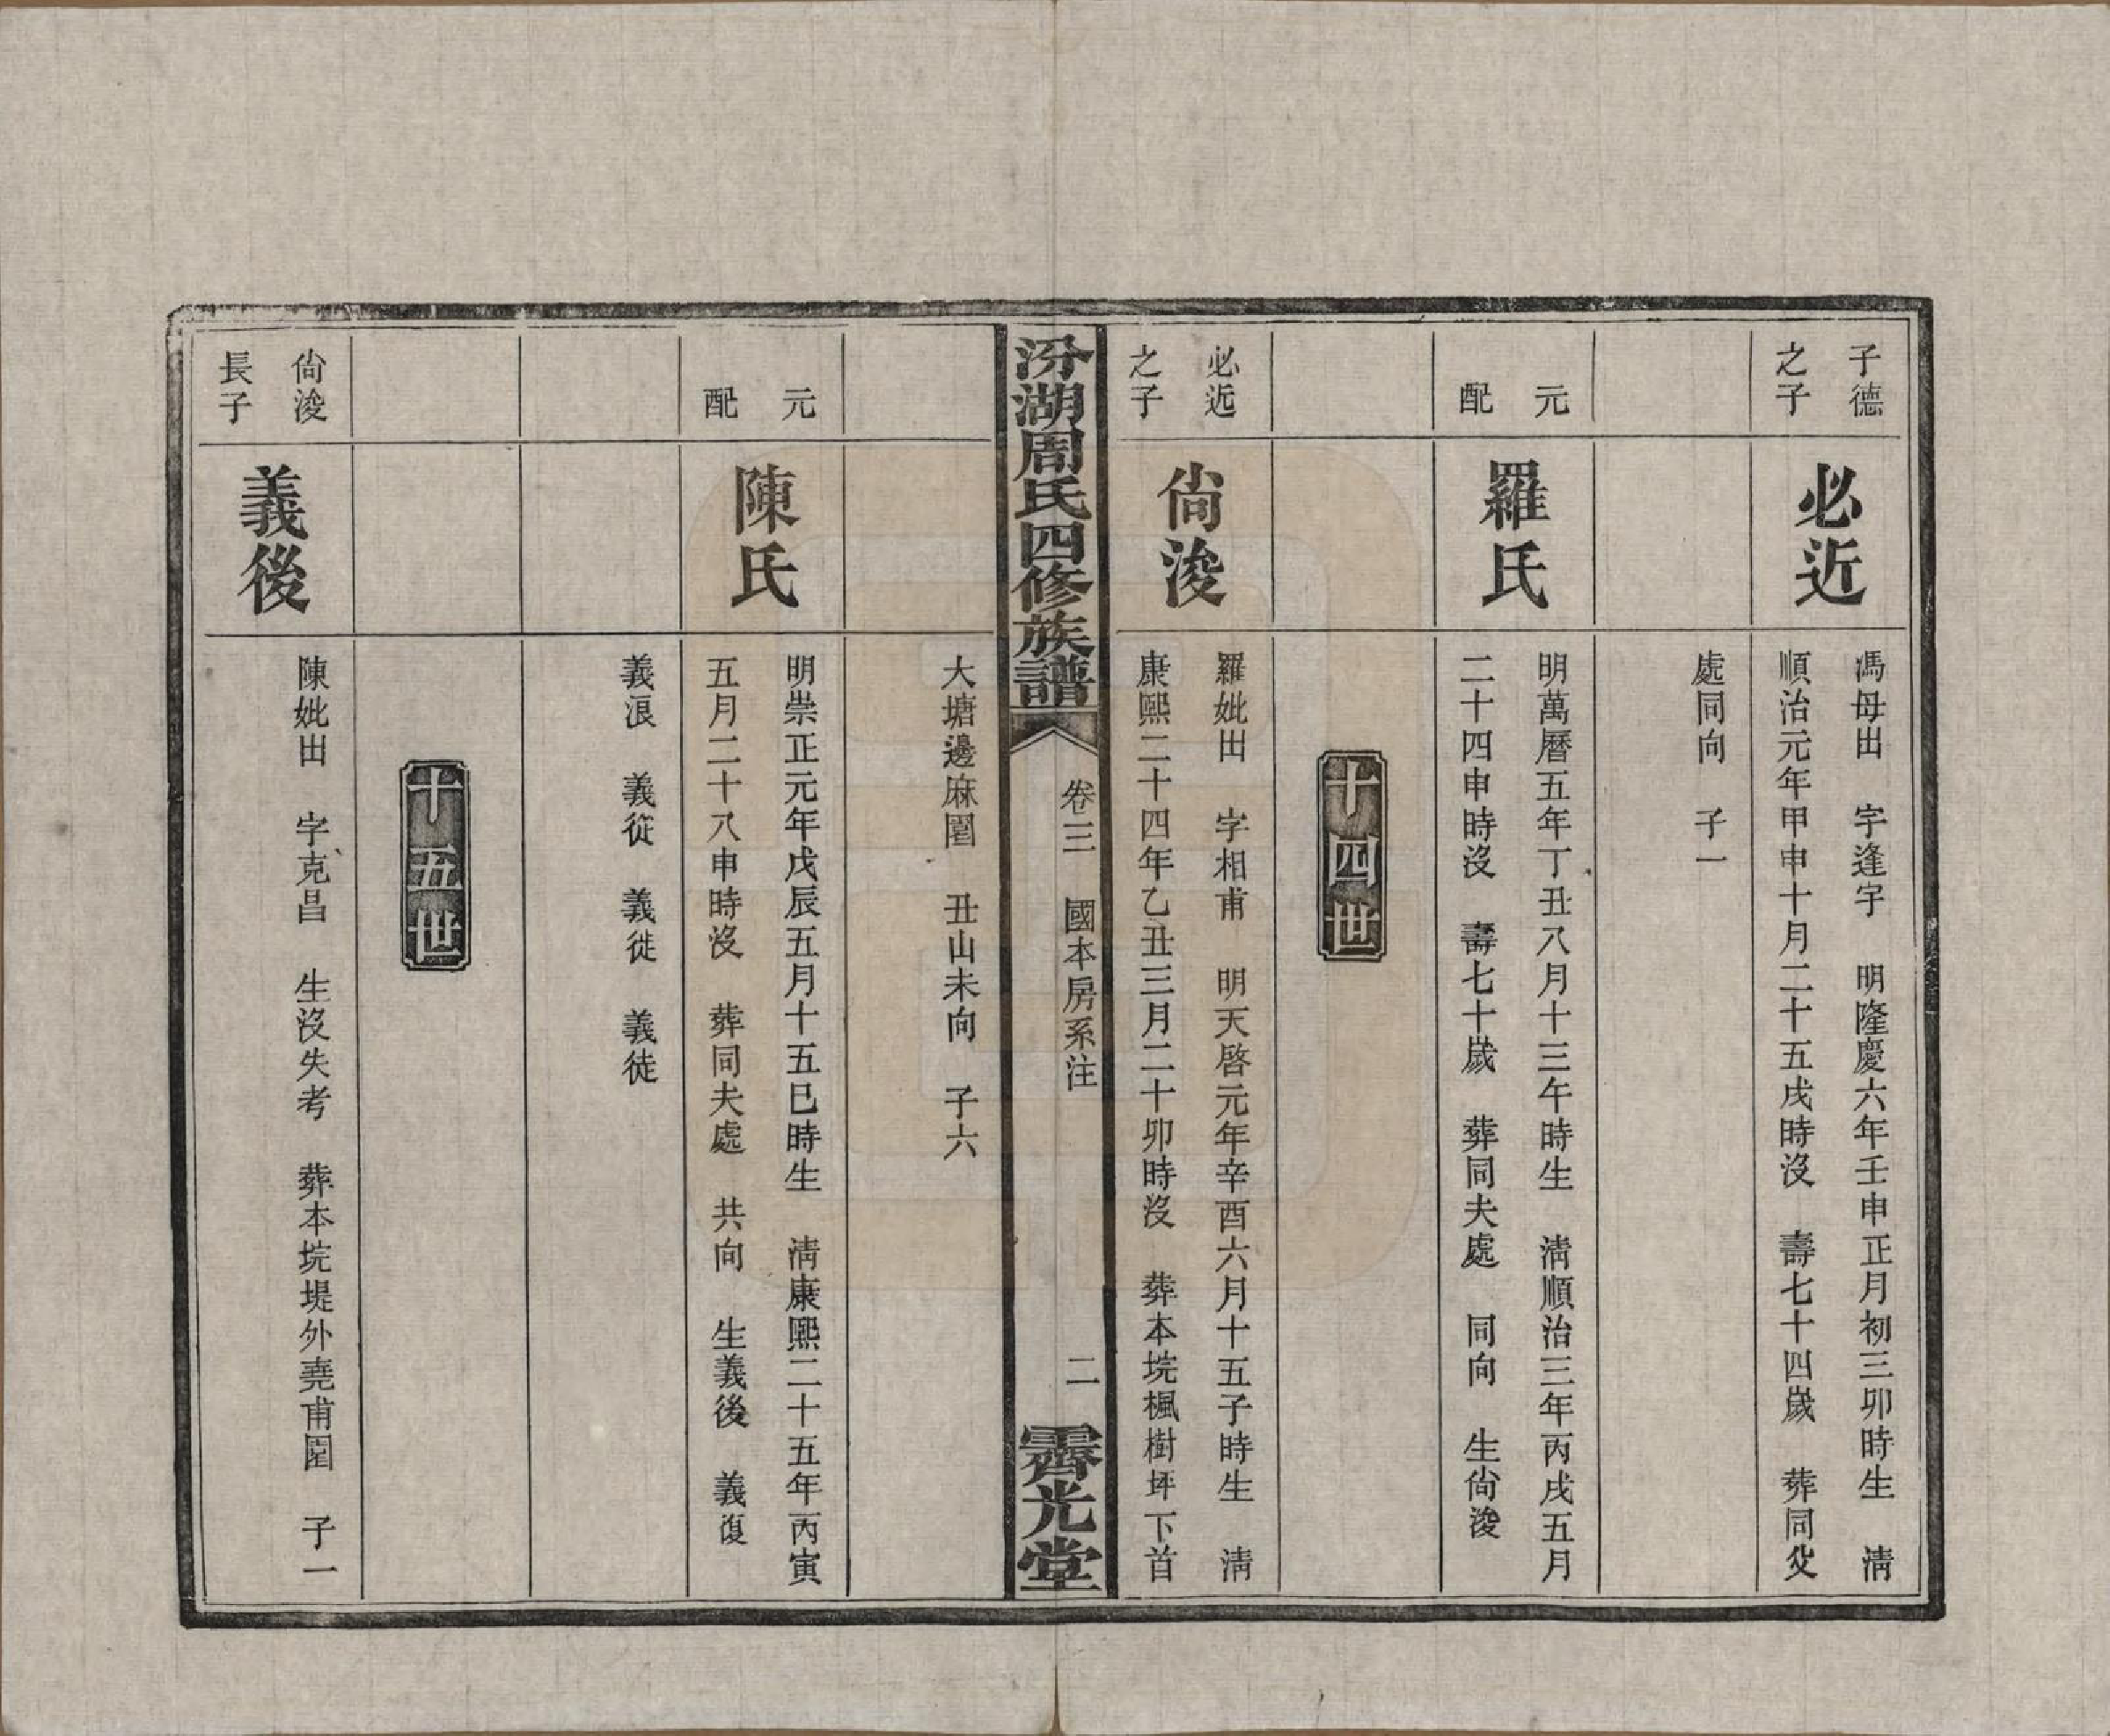 子德
之子
必近
馮母出　字逢宇　明隆慶六年壬申正月初三卯時生　淸
順治元年甲申十月二十五戌時沒　壽七十四歲　葬同父
處同向　子一
元
配
羅氏
明萬曆五年丁丑八月十三午時生　淸順治三年丙戌五月
二十四申時沒　壽七十歲　葬同夫處　同向　生尙浚
十四世
必近
之子
尙浚
羅妣出　字相甫　明天啓元年辛酉六月十五子時生　淸
康熙二十四年乙丑三月二十卯時沒　葬本垸楓樹坪下首
汾湖周氏四修族譜
卷三　國本房系注
二
霽光堂
大塘邊麻園　丑山未向　子六
元
配
陳氏
明崇正元年戊辰五月十五巳時生　淸康熙二十五年丙寅
五月二十八申時沒　葬同夫處　共向　生義後　義復
義浪　義從　義徙　義徒
十五世
尙浚
長子
義後
陳妣出　字克昌　生沒失考　葬本垸堤外堯甫園　子一